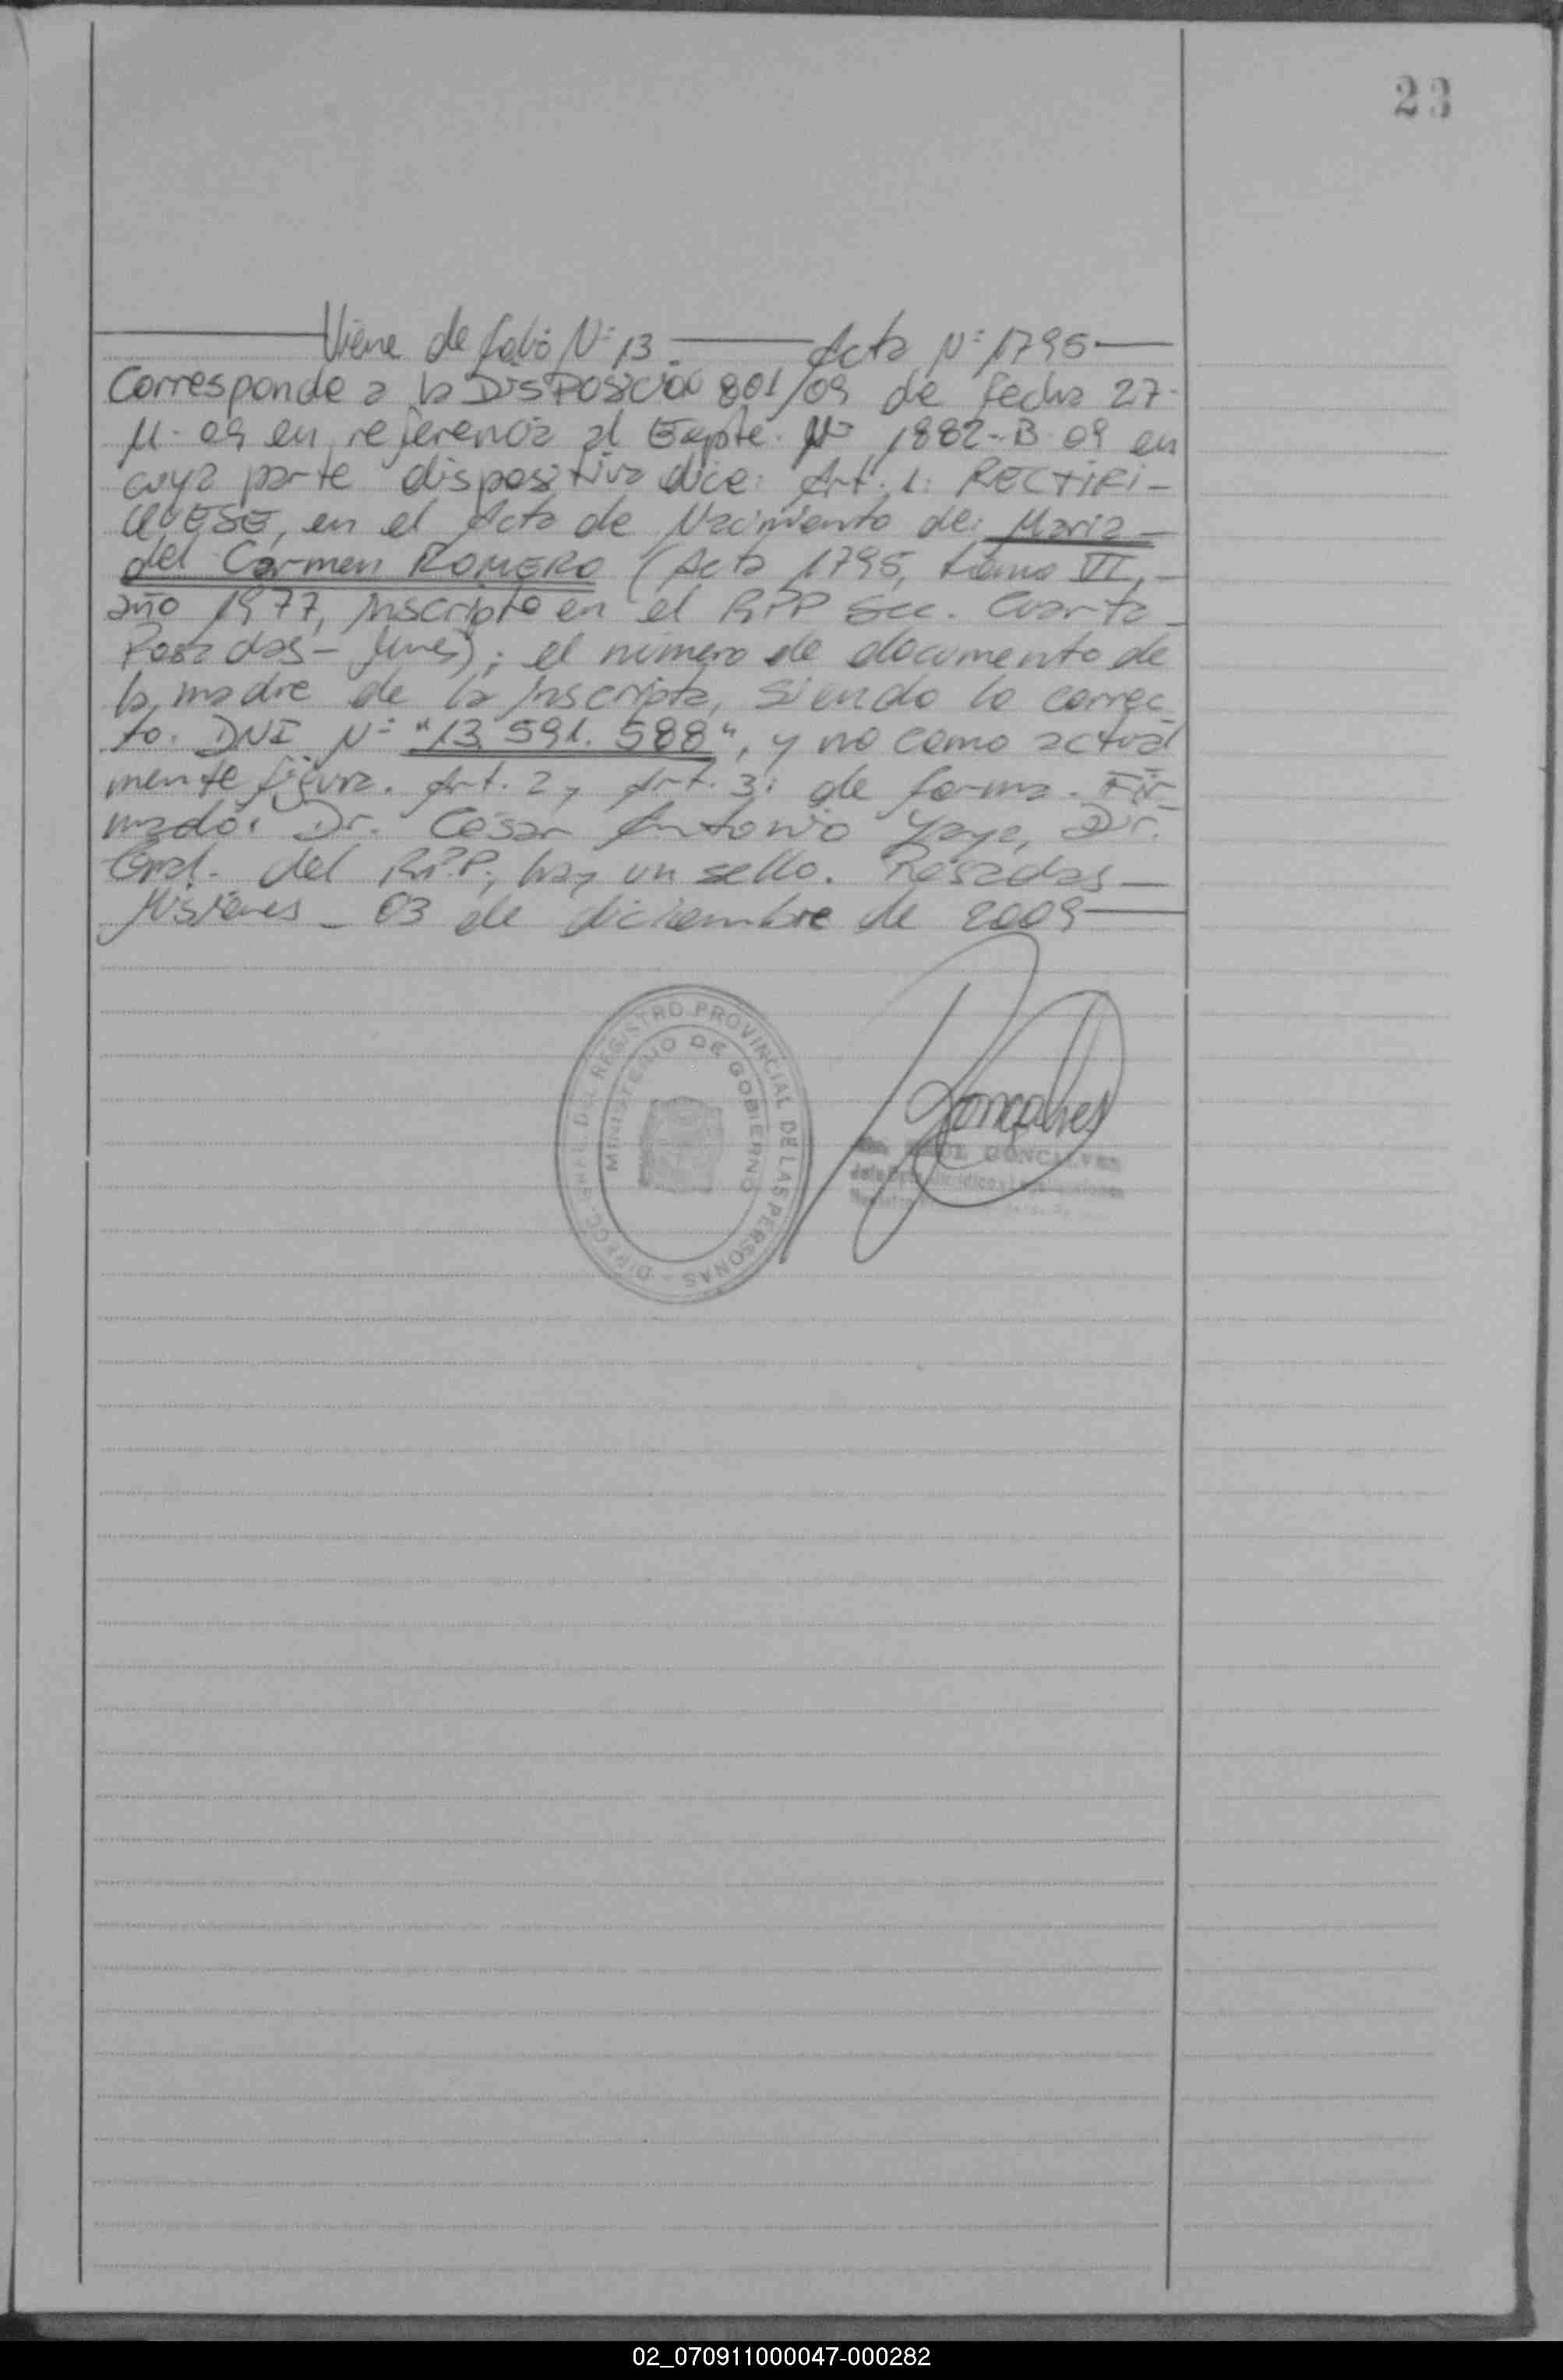 23
Viene de folio Nº 13. Acta Nº 1795
Corresponde a la DISPOSICION 801/09 de fecha 27-
11-09 en referencia al Expte. Nº 1882-B-09 en
cuya parte dispositiva dice: Art. 1: RECTIFI-
QUESE, en el Acta de Nacimiento de: Maria
del Carmen ROMERO (Acta 1795, tomo VI,
año 1977, Inscripto en el RPP Sec. Cuarta
Posadas - Mnes); el número de documento de
la madre de la Inscripta, siendo lo correc
to: DNI Nº "13.591.588", y no como actual
mente figura. Art. 2 y Art. 3: de forma. Fir
mado: Dr. César Antonio Yaya, Dir.
Gral. del R.P.P., hay un sello. Posadas -
Misiones - 03 de diciembre de 2009
DIRECC. GRAL. DEL REGISTRO PROVINCIAL DE LAS PERSONAS -
MINISTERIO DE GOBIERNO
Gonçalves
GONCALVES
02_070911000047-000282